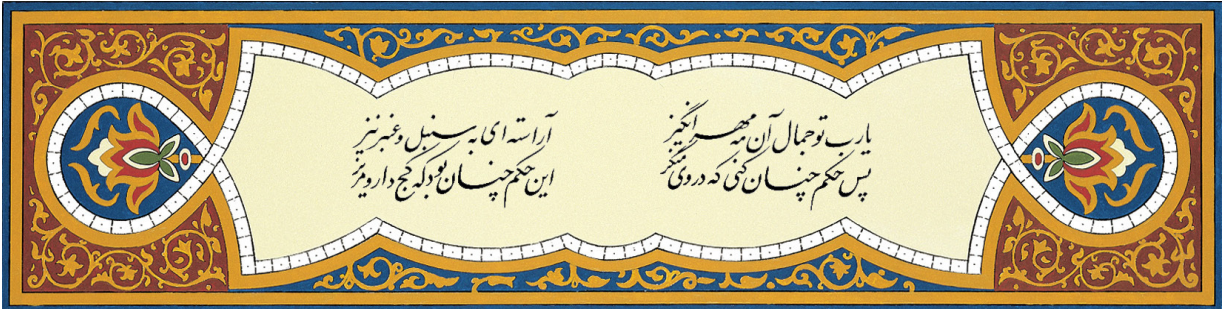 یارب تو جمال آن مه مهرانگیز
آراسته ای به سنبل و عنبر نیز
پس حکم چنان کنی که در وی منگر
این حکم چنان بود که کج دار و مریز